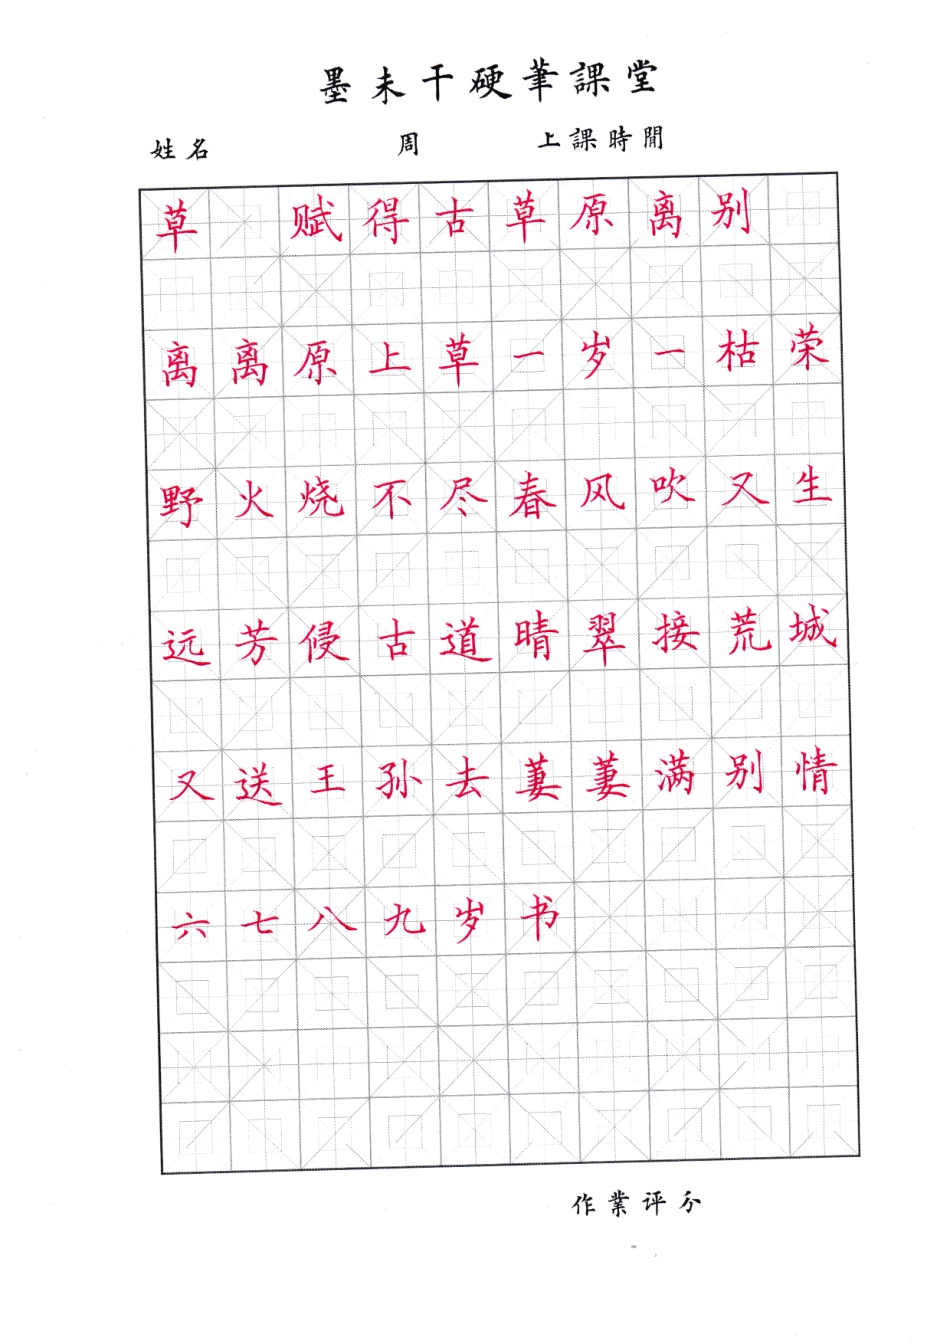 墨未干硬筆課堂
姓名 周 上課時間
草 赋得古草原离别
离离原上草一岁一枯荣
野火烧不尽春风吹又生
远芳侵古道晴翠接荒城
又送王孙去萋萋满别情
六七八九岁书
作業评分